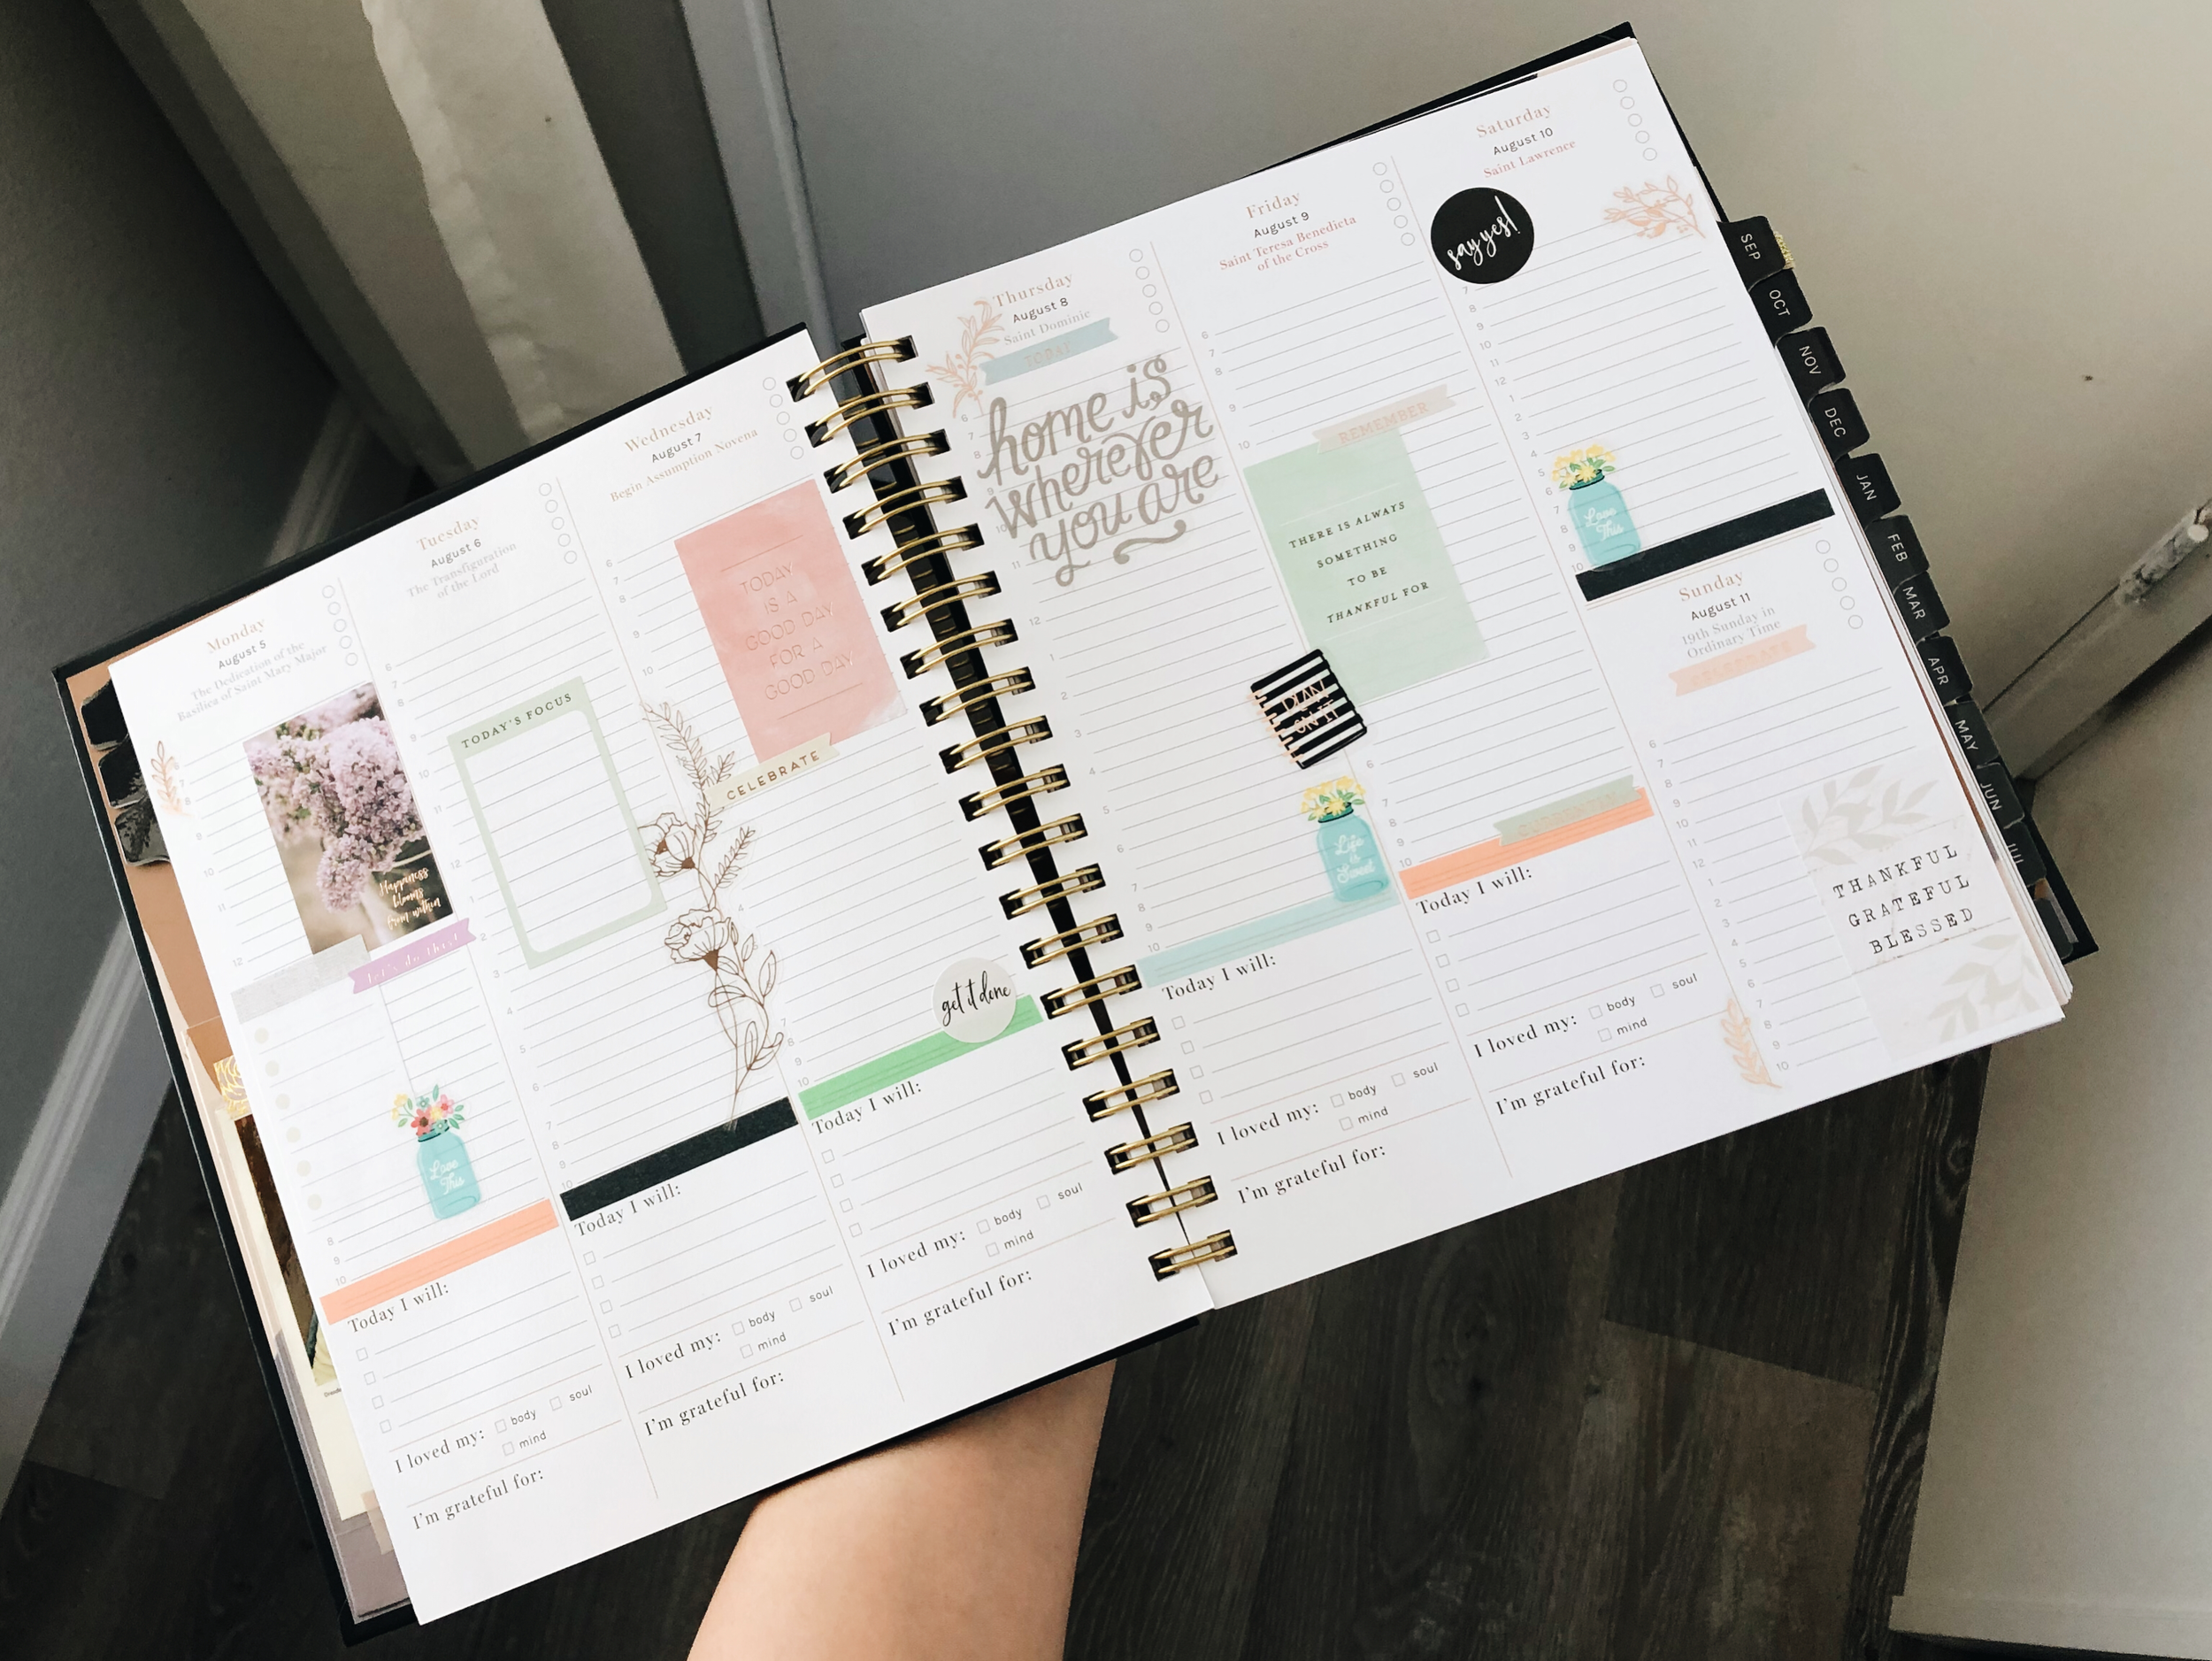 Monday
August 5
The Dedication of the
Basilica of Saint Mary Major
7
8
9
10
11
12
Happiness
blooms
from within
let's do this!
Love
This
8
9
10
Today I will:
I loved my:
body
soul
mind
I'm grateful for:
Tuesday
August 6
The Transfiguration
of the Lord
6
7
8
9
10
TODAY'S FOCUS
12
2
3
4
5
6
7
8
9
10
Today I will:
I loved my:
body
soul
mind
I'm grateful for:
Wednesday
August 7
Begin Assumption Novena
6
7
8
9
10
TODAY
IS A
GOOD DAY
FOR A
GOOD DAY
CELEBRATE
4
get it done
7
8
9
10
Today I will:
I loved my:
body
soul
mind
I'm grateful for:
Thursday
August 8
Saint Dominic
TODAY
home is
wherever
you are
6
7
8
9
10
11
12
1
2
3
4
5
6
7
8
9
10
Life
is
Sweet
Today I will:
I loved my:
body
soul
mind
I'm grateful for:
Friday
August 9
Saint Teresa Benedicta
of the Cross
6
7
8
9
10
REMEMBER
THERE IS ALWAYS
SOMETHING
TO BE
THANKFUL FOR
PLAN
ON IT
6
7
8
9
10
Today I will:
I loved my:
body
soul
mind
I'm grateful for:
Saturday
August 10
Saint Lawrence
say yes!
7
8
9
10
11
12
1
2
3
4
5
6
7
8
9
10
Love
This
Sunday
August 11
19th Sunday in
Ordinary Time
6
7
8
9
10
11
12
1
2
3
4
5
6
7
8
9
10
THANKFUL
GRATEFUL
BLESSED
SEP
OCT
NOV
DEC
JAN
FEB
MAR
APR
MAY
JUN
JUL